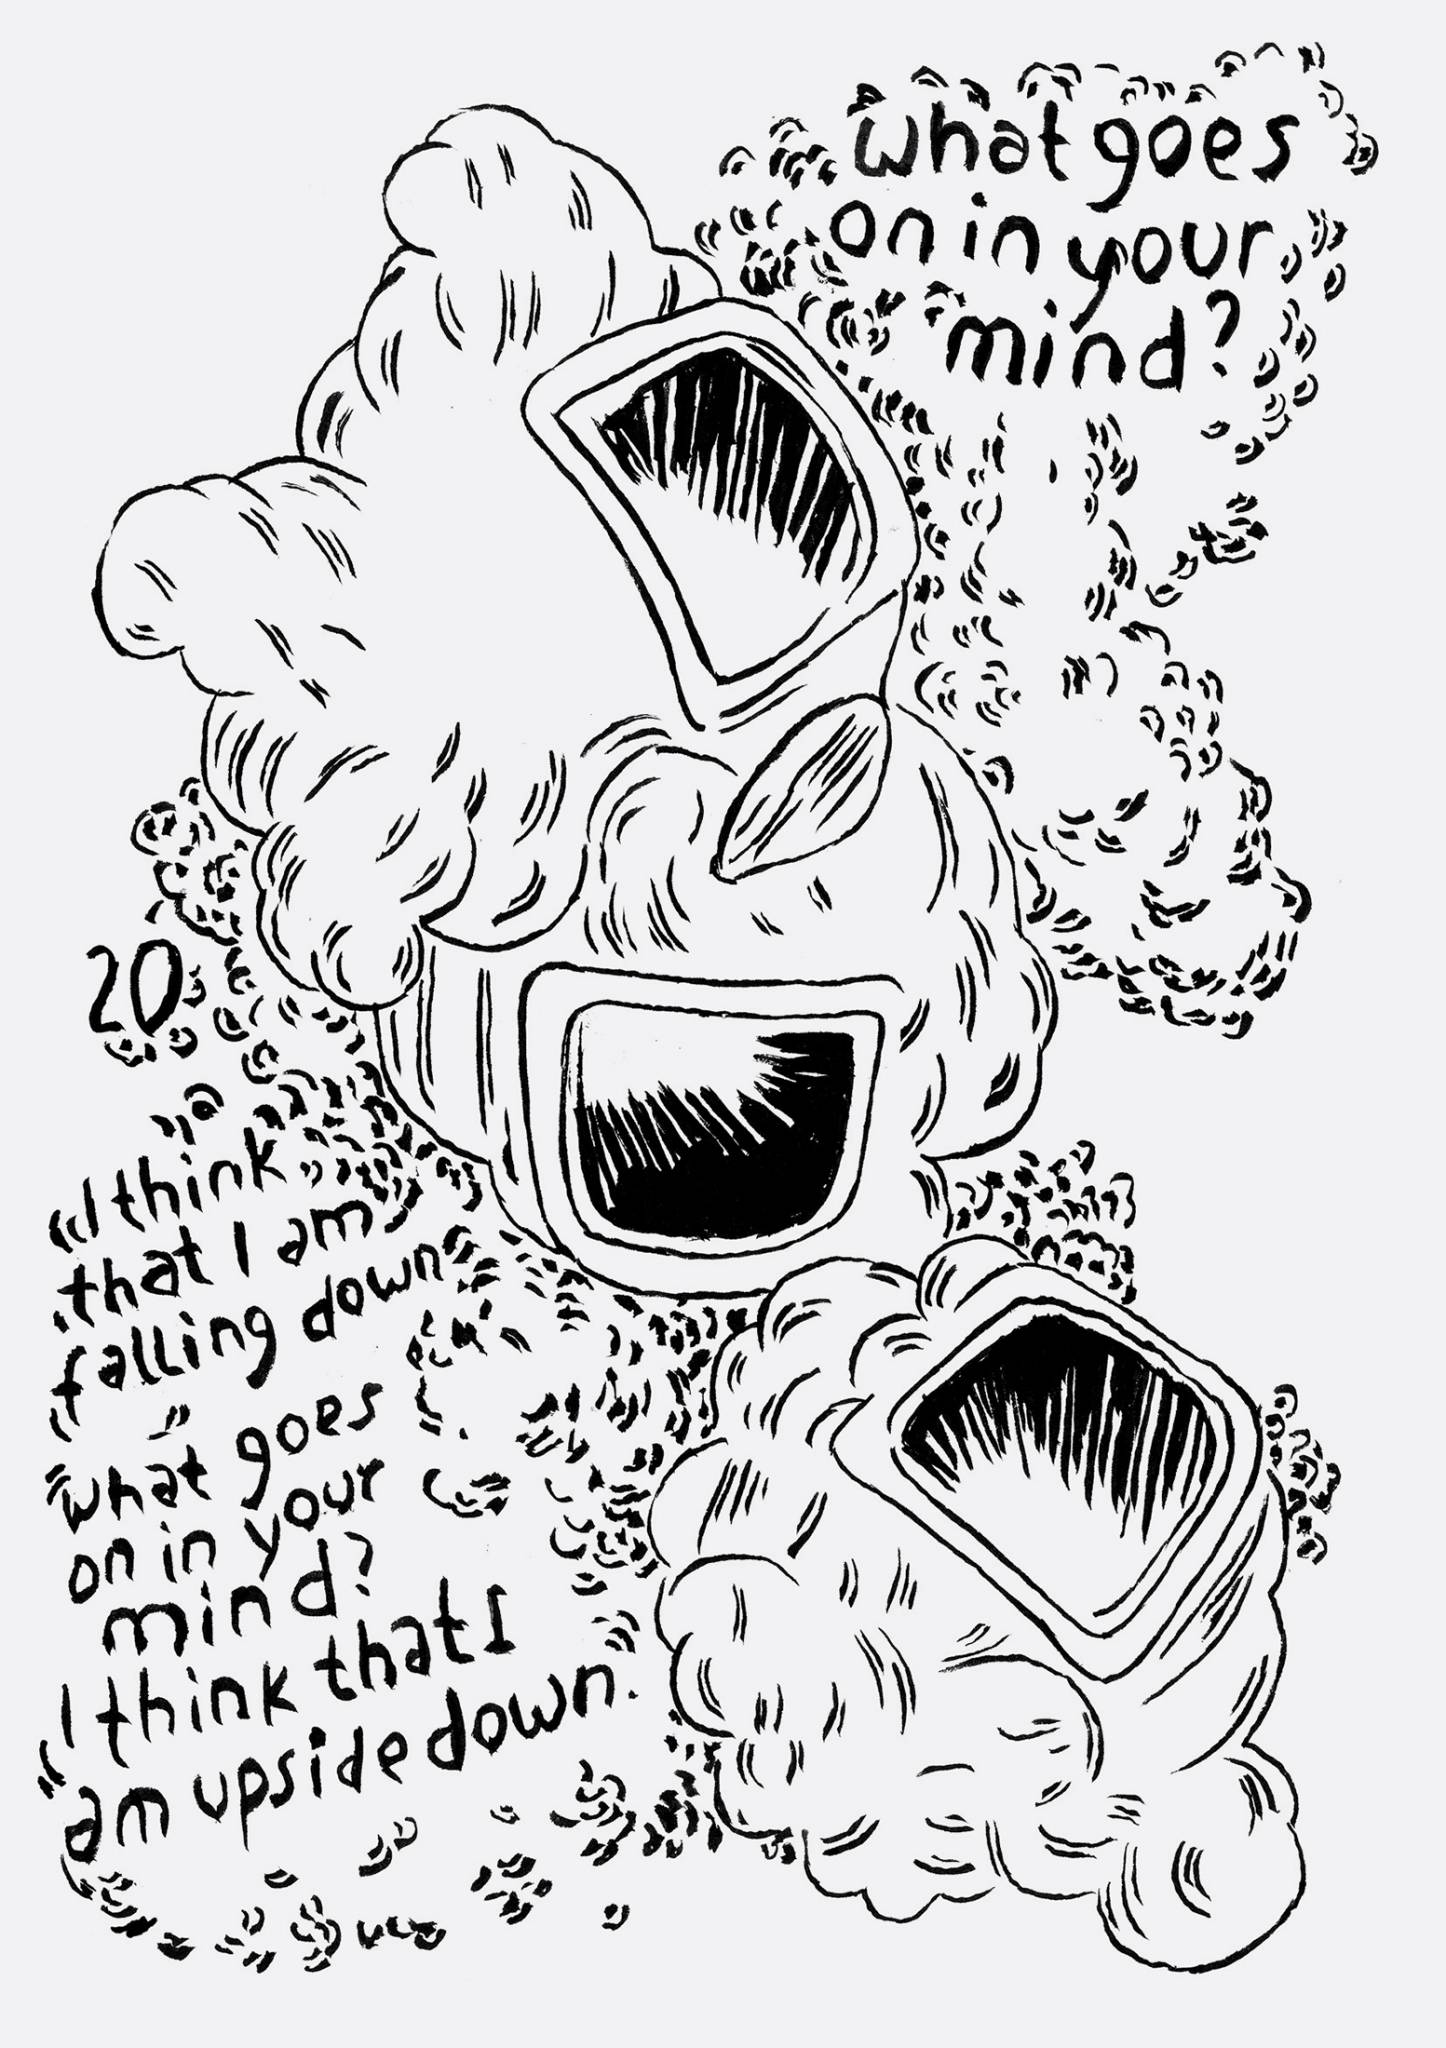 what goes
on in your
mind?
20
I think
that I am
falling down
what goes
on in your
mind?
I think that I
am upside down.